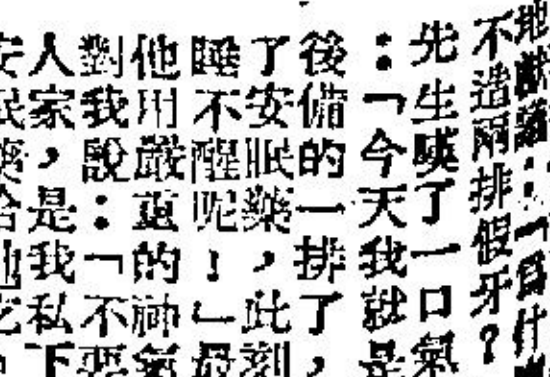 地獄講：「爲什
不造兩排假牙？
先生嘆了一口氣
：「今天我就是
後備的一排了，
了安眠藥，此刻
睡不醒呢！」最
他用嚴重的神氣
對我說：「不要
人家，是我私下
安眠藥給他吃